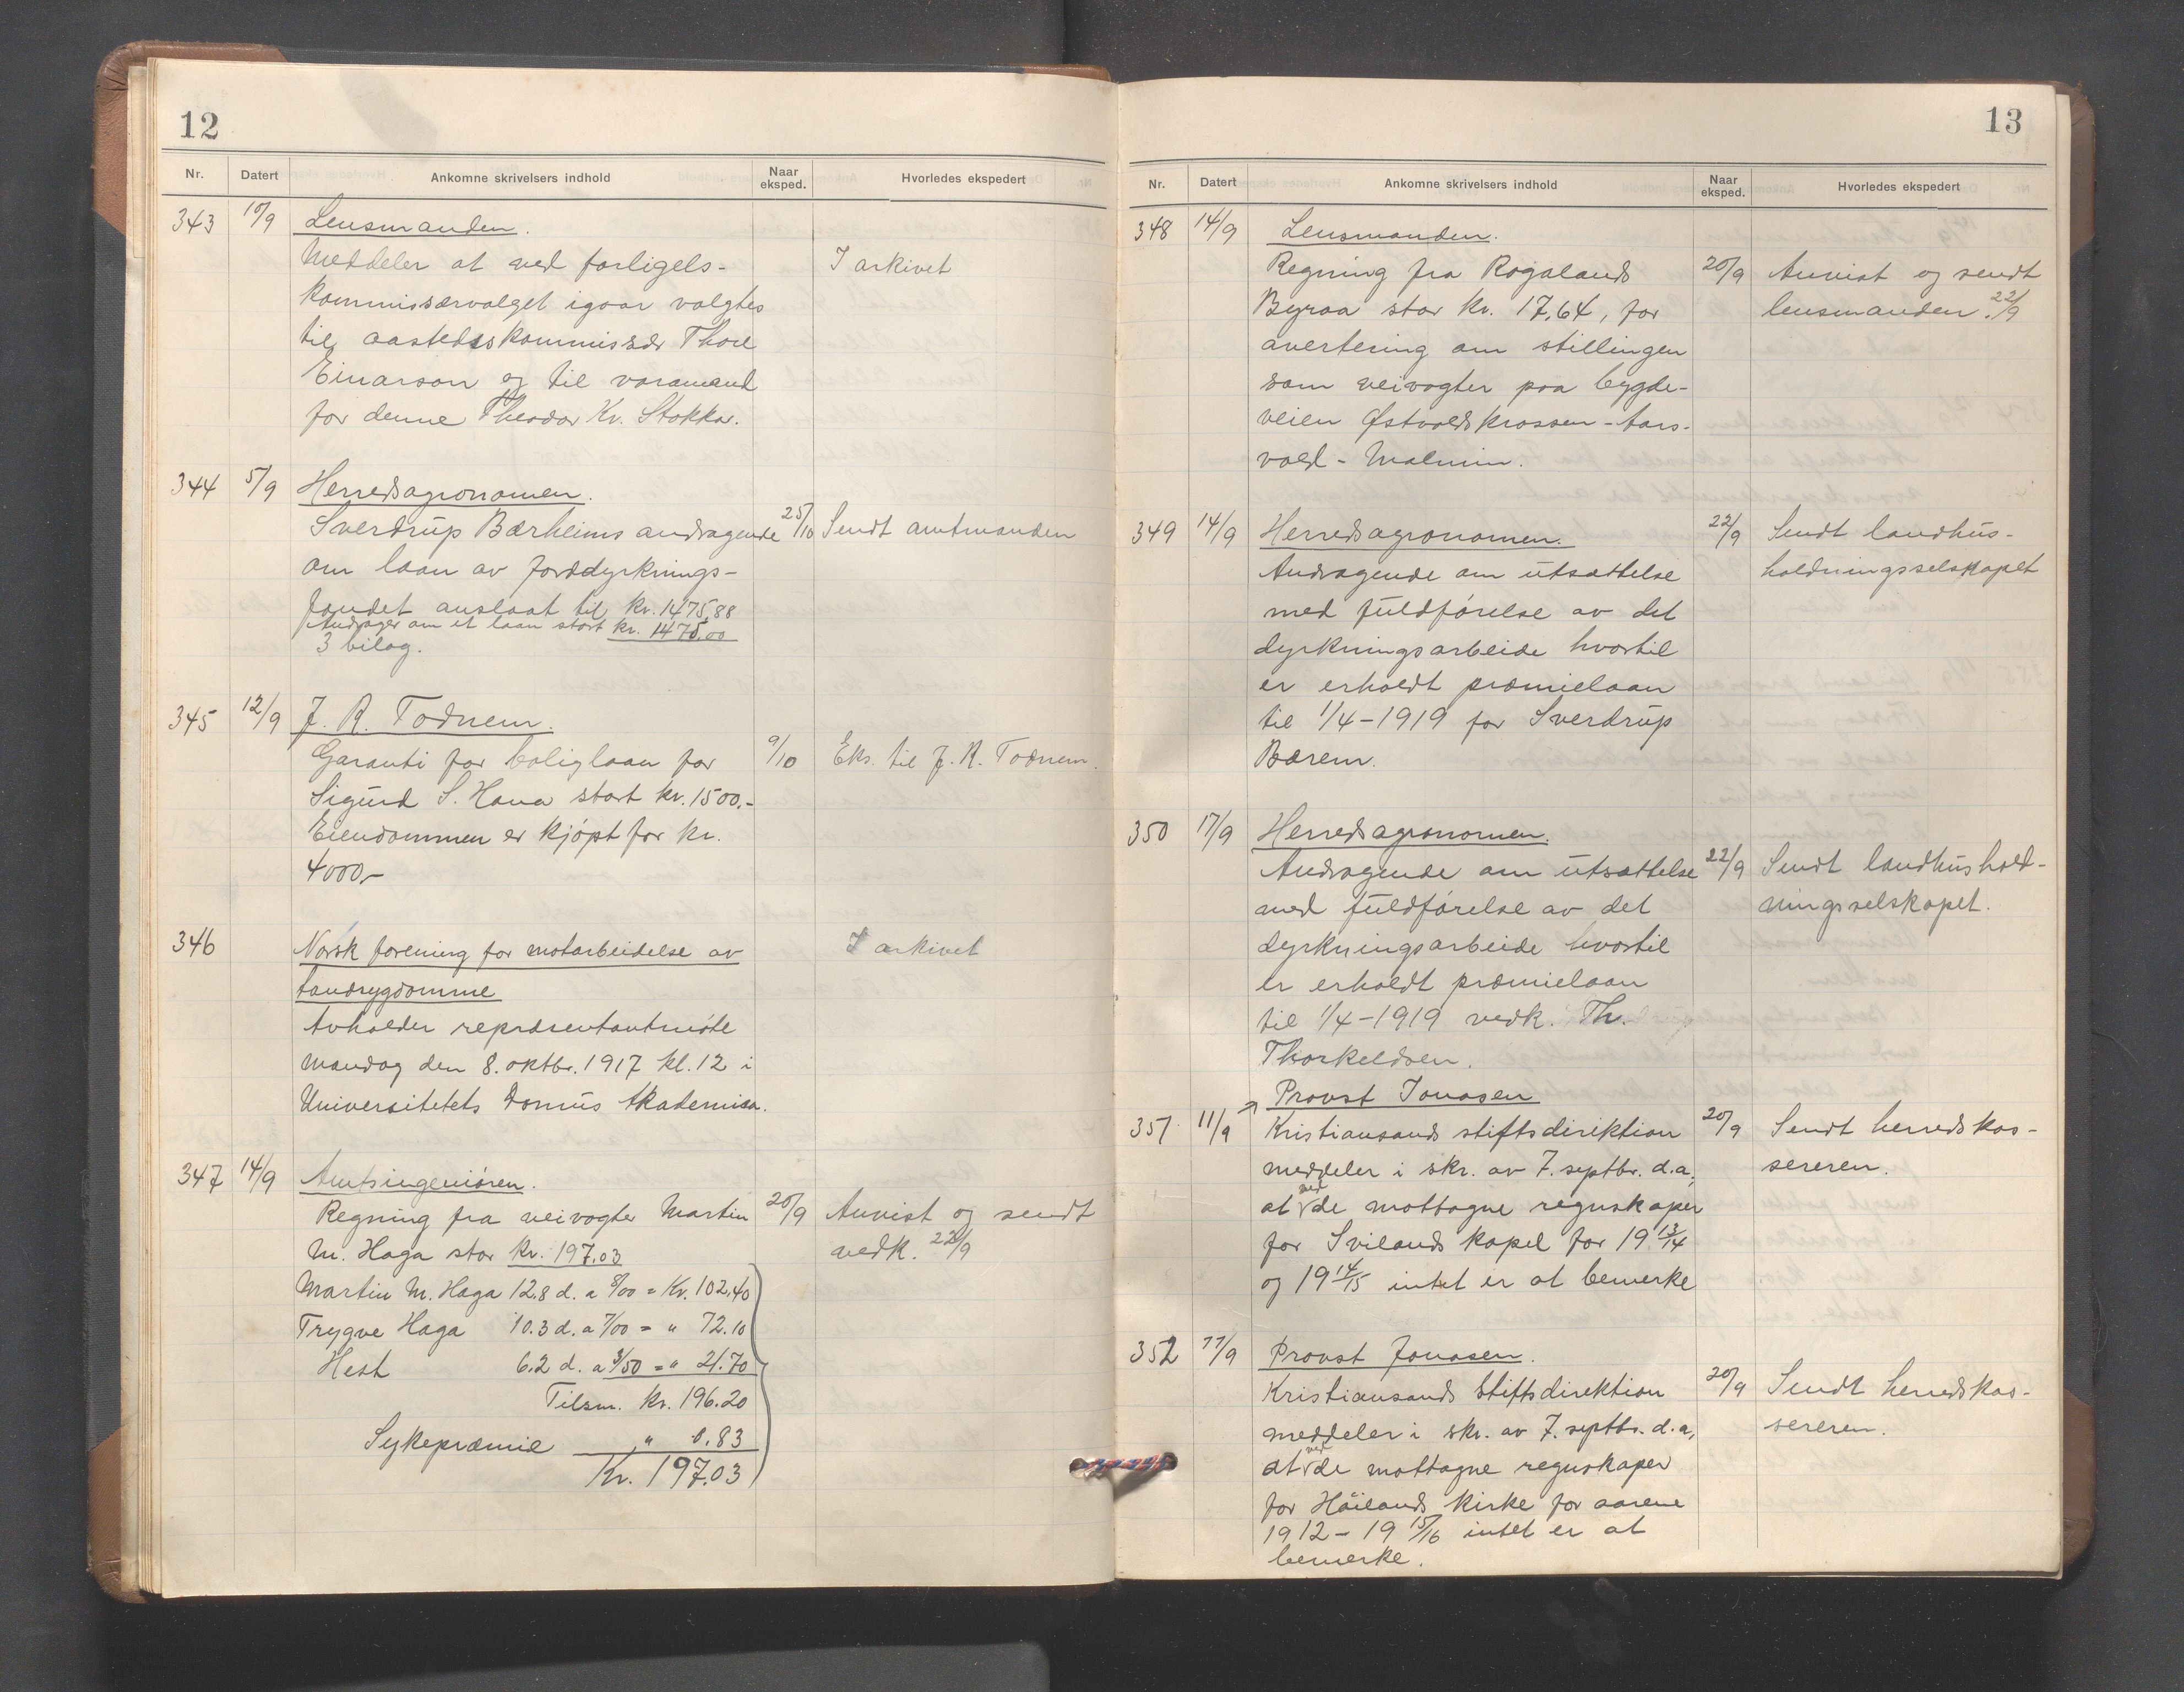 12
Nr. Datert Ankomne skrivelsers indhold Naar eksped. Hvorledes ekspedert
343 10/9 Lensmanden.
Meddeler at ved forligels- I arkivet
kommissærvalget igaar valgtes
til aastedskommissær Thore
Einarson og til varamand
for denne Theodor Kr. Stokka.
344 5/9 Herredsagronomen.
Sverdrup Bærheims andragende 25/10 Sendt amtmanden
om laan av jorddyrknings-
fondet anslaat til kr. 1475,88
Andrager om et laan stort kr. 1475,00
3 bilag.
345 12/9 J. R. Todnem.
Garanti for boliglaan for 9/10 Eks. til J. R. Todnem.
Sigurd S. Hana stort kr. 1500.-
Eiendommen er kjøpt for kr.
4000,-
346 Norsk forening for motarbeidelse av I arkivet
tandsygdomme
Avholder repræsentantmøte
mandag den 8. oktbr. 1917 kl. 12 i
Universitetets Domus Akademica.
347 14/9 Amtsingeniøren.
Regning fra veivogter Martin 20/9 Anvist og sendt
M. Haga stor kr. 197.03 vedk. 22/9
Martin M. Haga 12,8 d. a 8/00 = Kr. 102,40
Trygve Haga 10.3 d. a 7/00 = " 72.10
Hest 6.2 d. a 3/50 = " 21.70
Tilsm. kr. 196.20
Sykepræmie " 0.83
Kr. 197.03
13
Nr. Datert Ankomne skrivelsers indhold Naar eksped. Hvorledes ekspedert
348 14/9 Lensmanden.
Regning fra Rogalands 20/9 Anvist og sendt
Byraa stor kr. 17,64, for lensmanden. 22/9
avertering om stillingen
som veivogter paa bygde-
veien Østvoldskrossen - Aars-
vold - Malmin.
349 14/9 Herredsagronomen. 22/9 Sendt landhus-
Andragende om utsættelse holdningsselskapet
med fuldførelse av det
dyrkningsarbeide hvortil
er erholdt præmielaan
til 1/4-1919 for Sverdrup
Bærem.
350 17/9 Herredsagronomen.
Andragende om utsættelse 22/9 Sendt landhushold-
med fuldførelse av det ningsselskapet.
dyrkningsarbeide hvortil
er erholdt præmielaan
til 1/4-1919 vedk. Th.
Thorkeldsen.
Provst Jonasen
351 11/9 Kristiansands stiftsdirektion 20/9 Sendt herredskas-
meddeler i skr. av 7. septbr. d.a, sereren.
at ved de mottagne regnskaper
for Svilands kapel for 19 13/14
og 19 14/15 intet er at bemerke
352 17/9 Provst Jonasen.
Kristiansands Stiftsdirektion 20/9 Sendt herredskas-
meddeler i skr. av 7. septbr. d.a, sereren.
at ved de mottagne regnskaper
for Høilands kirke for aarene
1912 - 19 15/16 intet er at
bemerke.